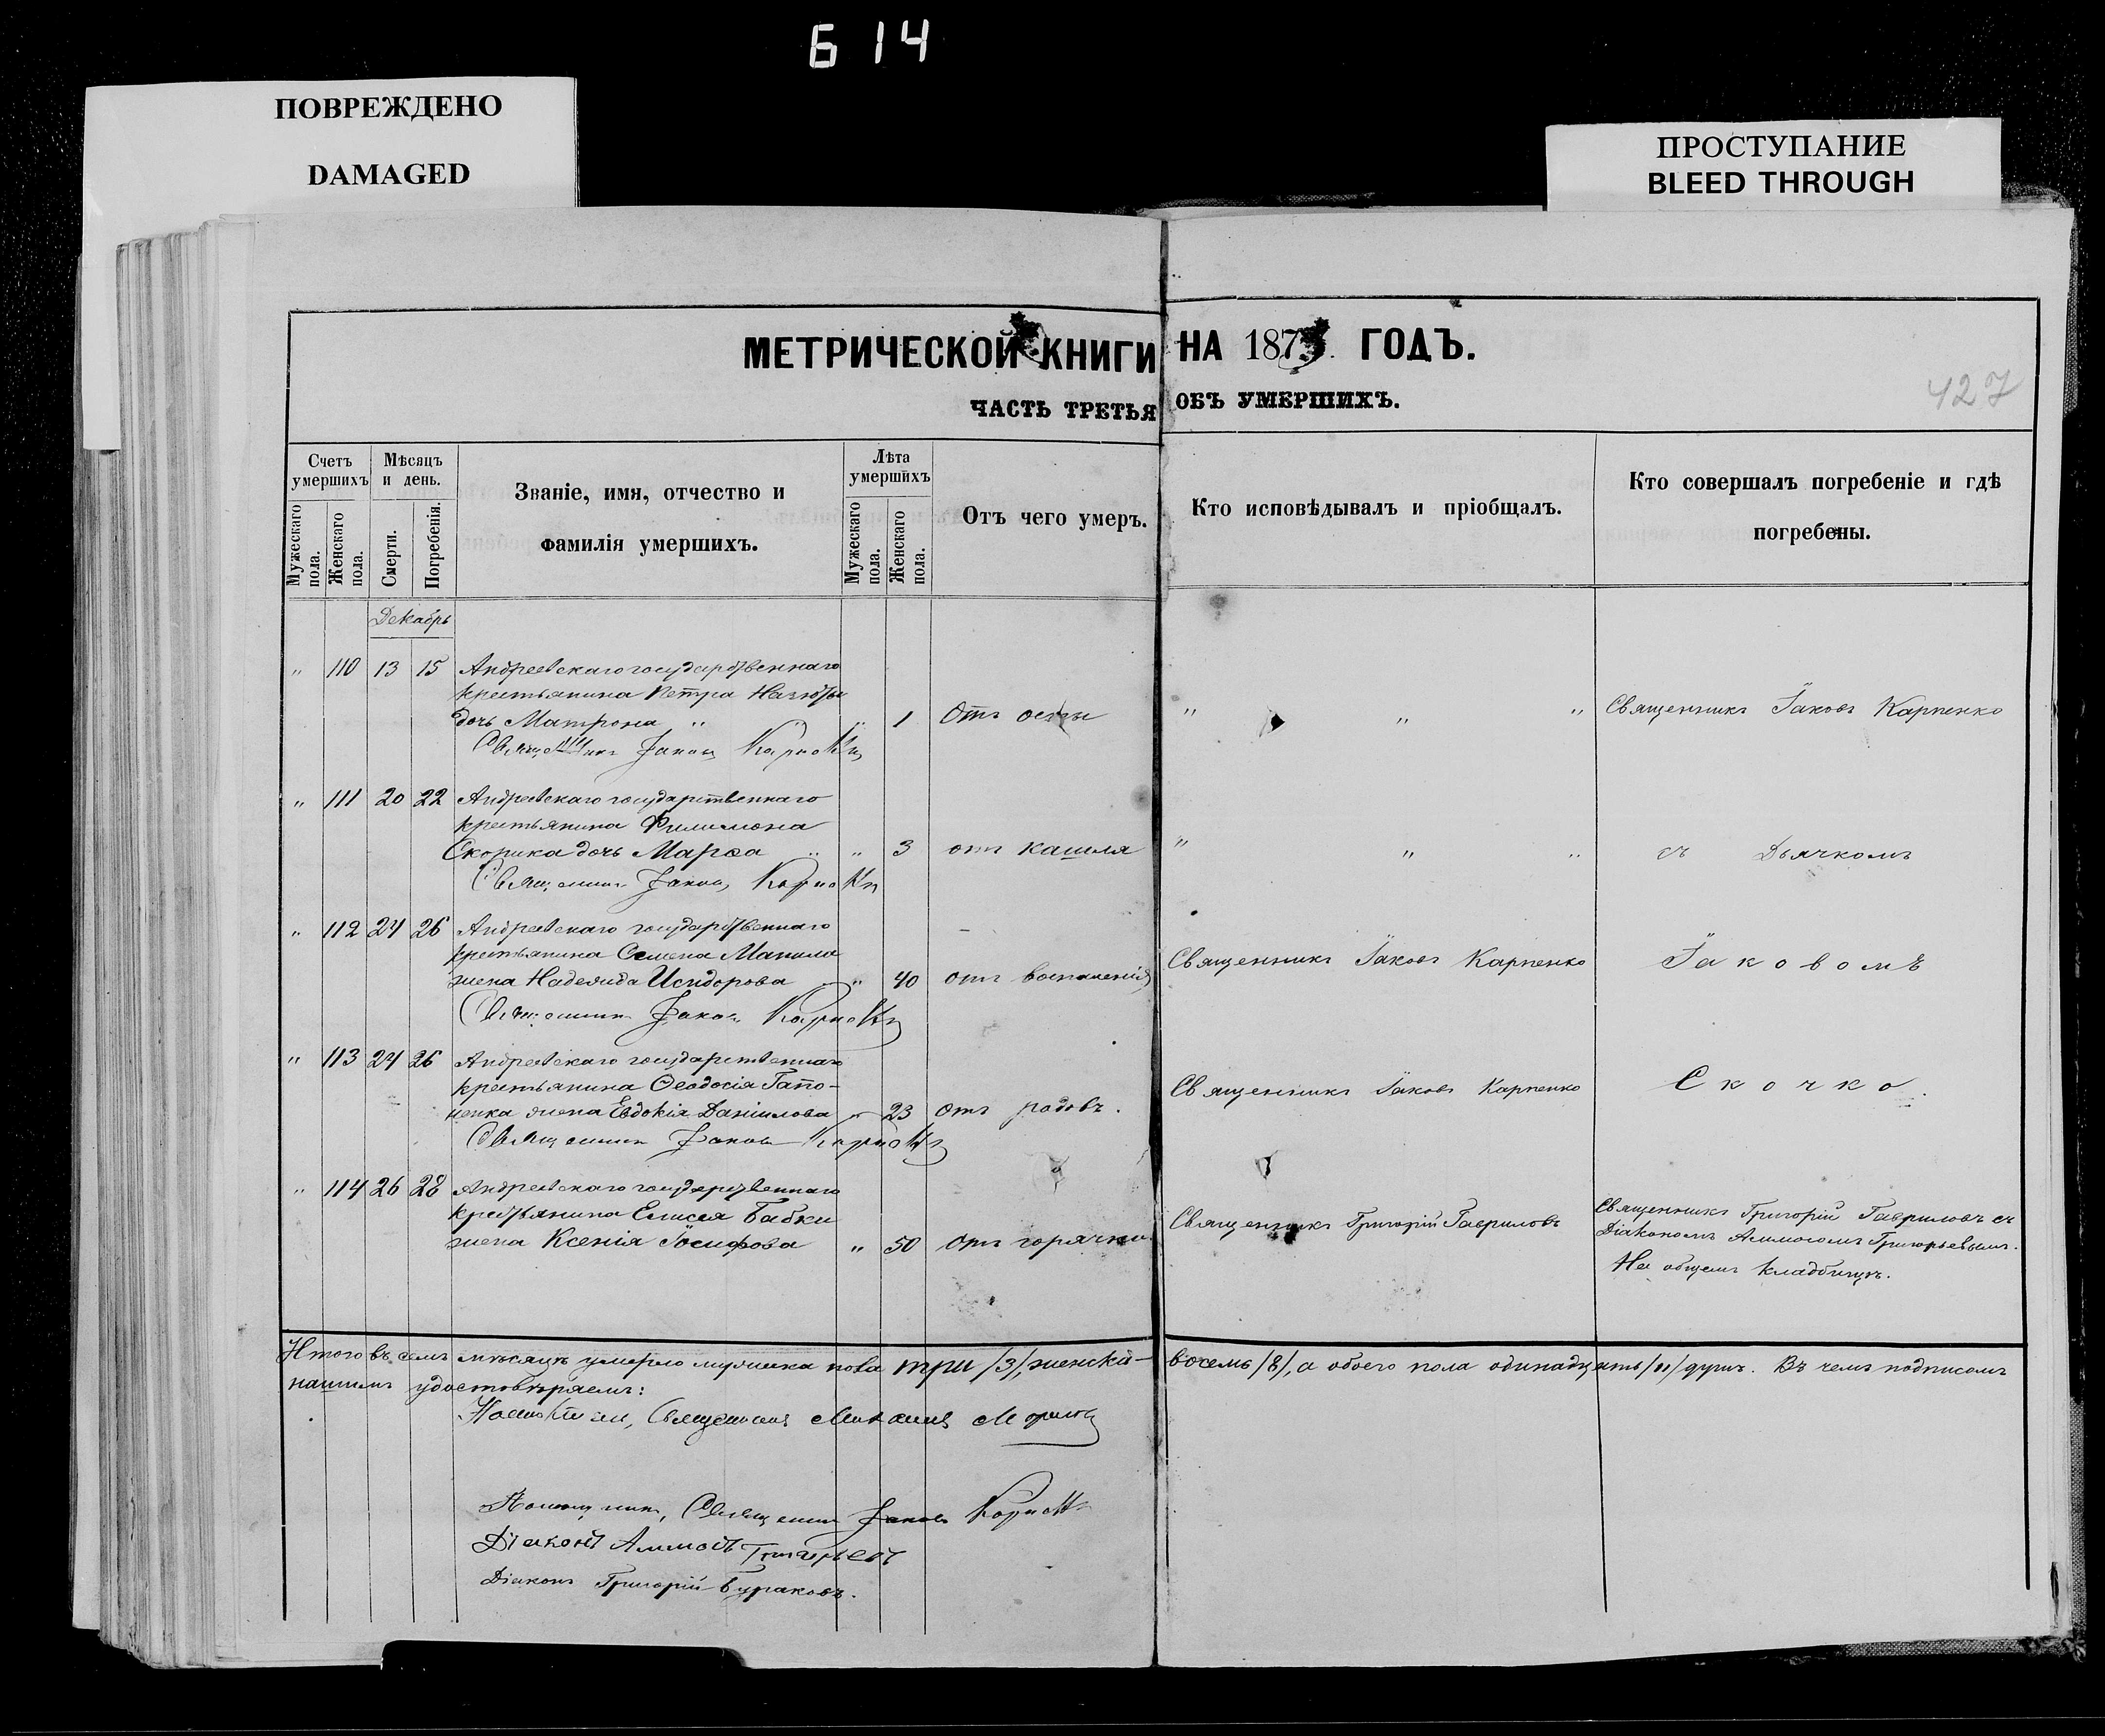 614
ПОВРЕЖДЕНО
DAMAGED
ПРОСТУПАНИЕ
BLEED THROUGH
МЕТРИЧЕСКОЙ КНИГИ НА 187 ГОДЪ.
ЧАСТЬ ТРЕТЬЯ ОБЪ УМЕРШИХЪ.
427
Счетъ умершихъ
Мужескаго пола.
Женскаго пола.
Мѣсяцъ и день.
Смерти.
Погребенія.
Званіе, имя, отчество и
фамилія умершихъ.
Лѣта умершихъ
Мужескаго пола.
Женскаго пола.
Отъ чего умеръ.
Кто исповѣдывалъ и пріобщалъ.
Кто совершалъ погребеніе и гдѣ
погребены.
Декабрь
" 110 13 15 Андреевскаго государственнаго
крестьянина Петра
дочь Матрона " " 1 Отъ оспы " " " Священникъ Іаковъ Карпенко
Священникъ Іаковъ Карпенко
" 111 20 22 Андреевскаго государственнаго
крестьянина Филимона
Скорика дочь Марѳа " " 3 отъ кашля " " " съ Дьячкомъ
Священникъ Іаковъ Карпенко
" 112 24 26 Андреевскаго государственнаго
крестьянина Семена
жена Надежда Исидорова " 40 отъ воспаленія Священникъ Іаковъ Карпенко Іаковомъ
Священникъ Іаковъ Карпенко
" 113 24 26 Андреевскаго государственнаго
крестьянина Ѳеодосія Гапо-
ненка жена Евдокія Даніилова " 23 отъ родовъ. Священникъ Іаковъ Карпенко Скочко.
Священникъ Іаковъ Карпенко
" 114 26 28 Андреевскаго государственнаго
крестьянина Елисея Бабки
жена Ксенія Іосифова " 50 отъ горячки Священникъ Григорій Гавриловъ Священникъ Григорій Гавриловъ съ
Діакономъ Аммосомъ Григорьевымъ.
На общемъ кладбищѣ.
Итого въ семъ мѣсяцѣ умерло мужеска пола три /3/, женска- восемь /8/, а обоего пола одинадцать /11/ душъ. Въ чемъ подписомъ
нашимъ удостовѣряемъ:
Настоятель, Священникъ Михаилъ
Помощникъ, Священникъ Іаковъ Карпенко
Діаконъ Аммосъ Григорьевъ
Діаконъ Григорій Бураковъ.